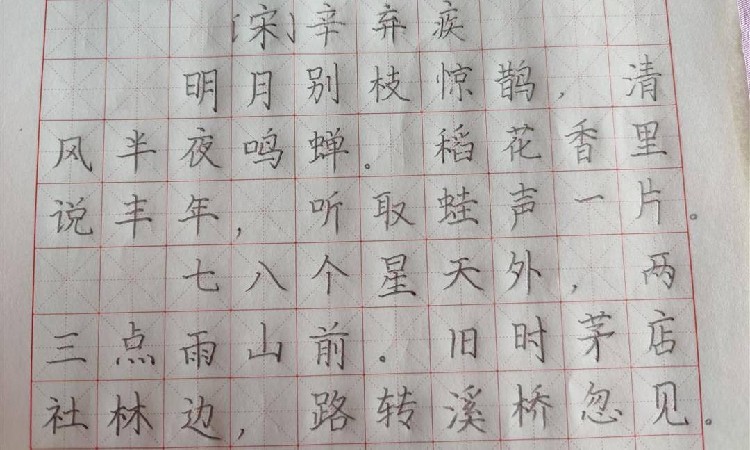 [宋]辛弃疾
明月别枝惊鹊，清
风半夜鸣蝉。稻花香里
说丰年，听取蛙声一片。
七八个星天外，两
三点雨山前。旧时茅店
社林边，路转溪桥忽见。